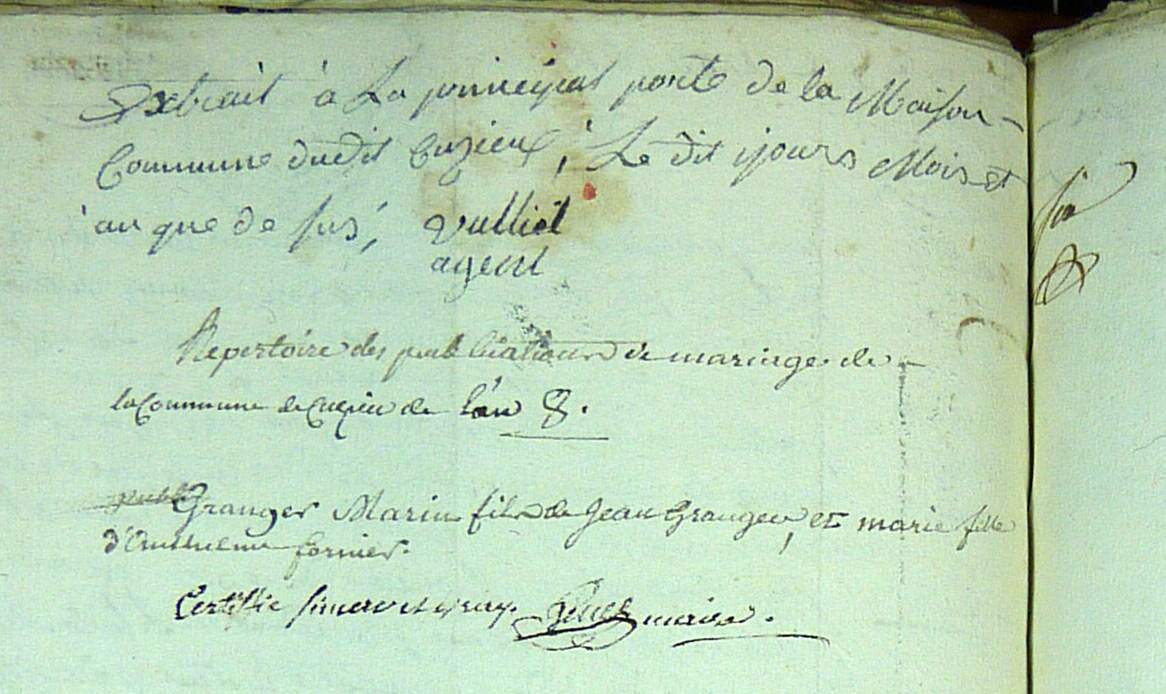 Extrait à La principal porte de la Maison
Commune dudit Cuzieux, Le dit jours Mois et
an que de sus, Vulliet
agent
Repertoire des publications de mariage de
la Commune de Cuzieu de l'an 8.
Granger Marin fils de Jean Granger, et marie fille
d'Anthelme fornier.
Certiffié sincere et vray. maire.
fin